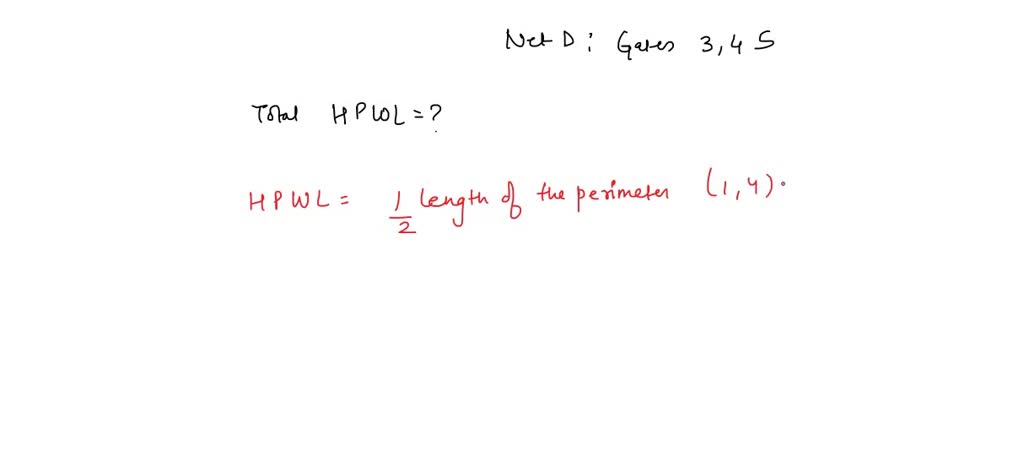 Net D : Gates 3,4 5
Total HPWL = ?
HPWL = 1/2 length of the perimeter (1,4).